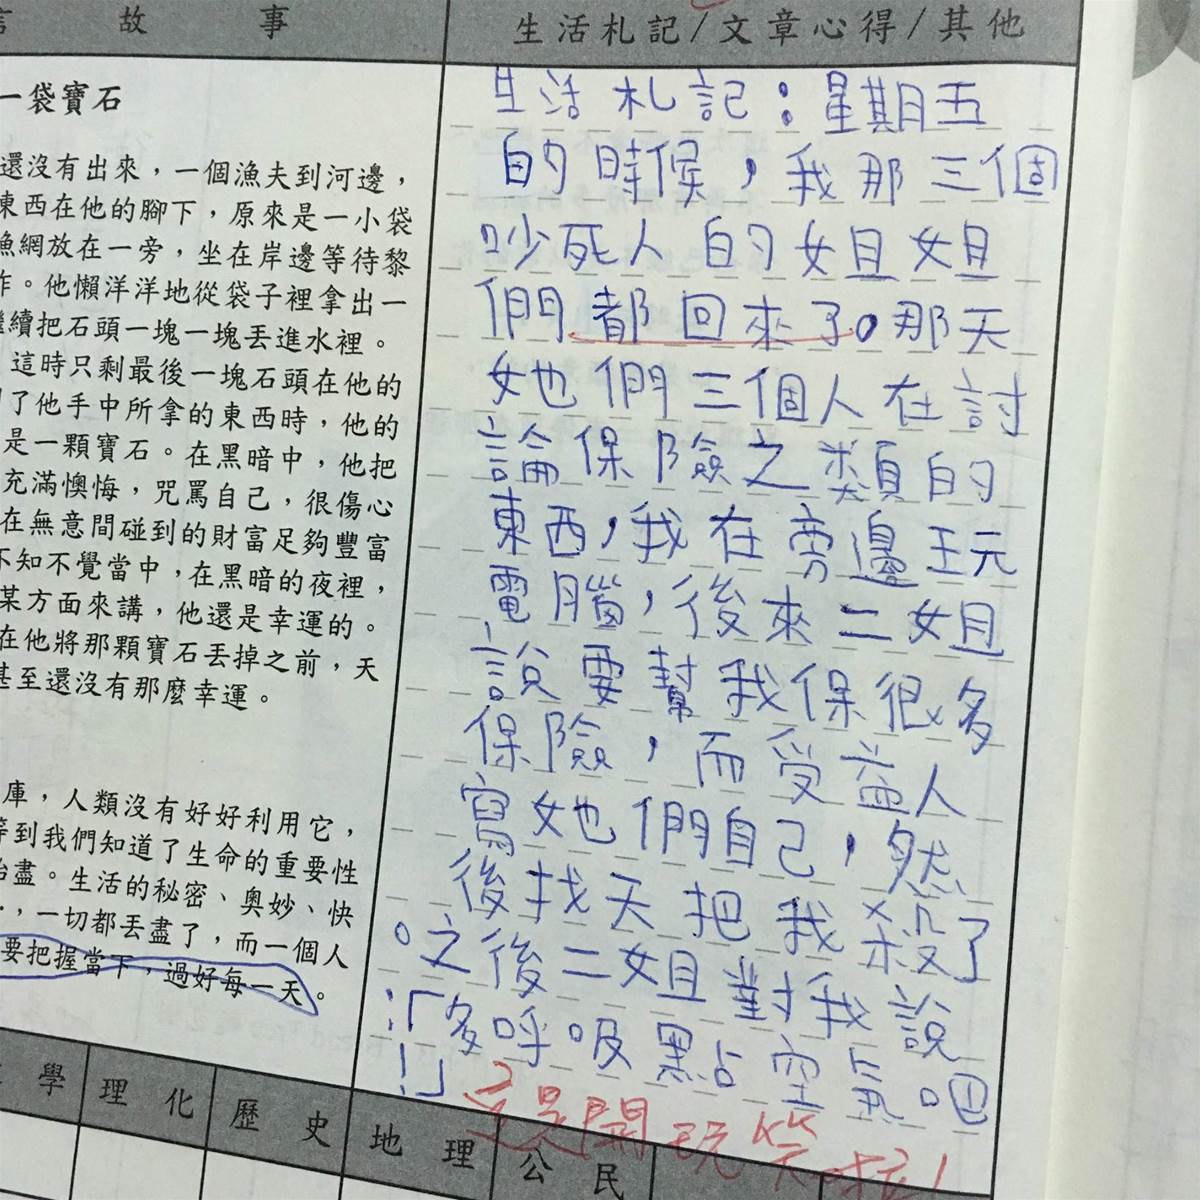 言故事
生活札記/文章心得/其他
一袋寶石
還沒有出來，一個漁夫到河邊，
東西在他的腳下，原來是一小袋
漁網放在一旁，坐在岸邊等待黎
作。他懶洋洋地從袋子裡拿出一
繼續把石頭一塊一塊丟進水裡。
這時只剩最後一塊石頭在他的
了他手中所拿的東西時，他的
是一顆寶石。在黑暗中，他把
充滿懊悔，咒罵自己，很傷心
在無意間碰到的財富足夠豐富
不知不覺當中，在黑暗的夜裡，
某方面來講，他還是幸運的。
在他將那顆寶石丟掉之前，天
甚至還沒有那麼幸運。
庫，人類沒有好好利用它，
等到我們知道了生命的重要性
殆盡。生活的秘密、奧妙、快
，一切都丟盡了，而一個人
要把握當下，過好每一天。
生活札記：星期五
的時候，我那三個
吵死人的姐姐
們都回來了。那天
她們三個人在討
論保險之類的
東西，我在旁邊玩
電腦，後來二姐
說要幫我保很多
保險，而受益人
寫她們自己，然
後找天把我殺了
。之後二姐對我說
:「多呼吸點空氣吧
!」
這是開玩笑啦！
學 理化 歷史 地理 公民